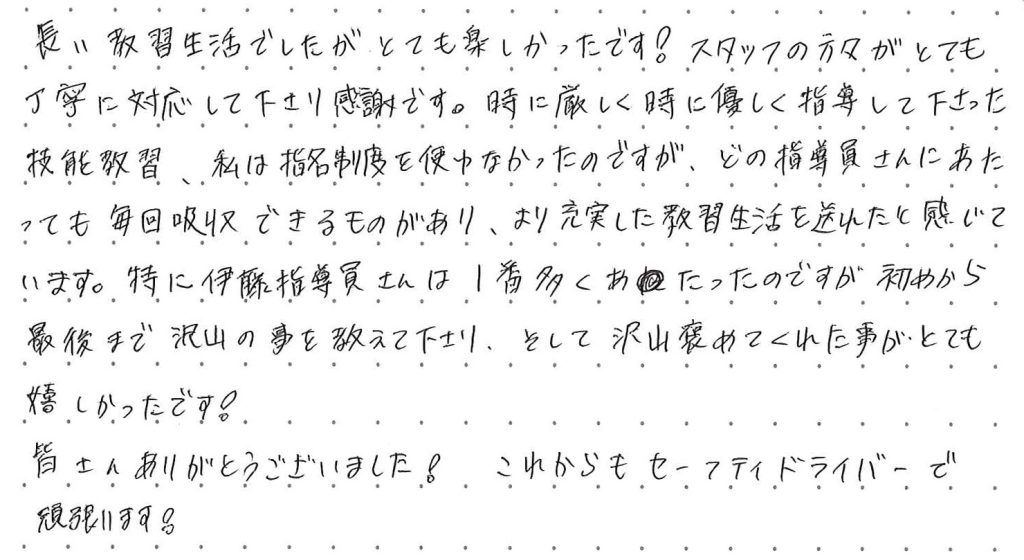 長い教習生活でしたがとても楽しかったです！スタッフの方々がとても
丁寧に対応して下さり感謝です。時に厳しく時に優しく指導して下さった
技能教習、私は指名制度を使わなかったのですが、どの指導員さんにあた
っても毎回吸収できるものがあり、より充実した教習生活を送れたと感じて
います。特に伊藤指導員さんは1番多くあたったのですが初めから
最後まで沢山の事を教えて下さり、そして沢山褒めてくれた事がとても
嬉しかったです！
皆さんありがとうございました！ これからもセーフティドライバーで
頑張ります！